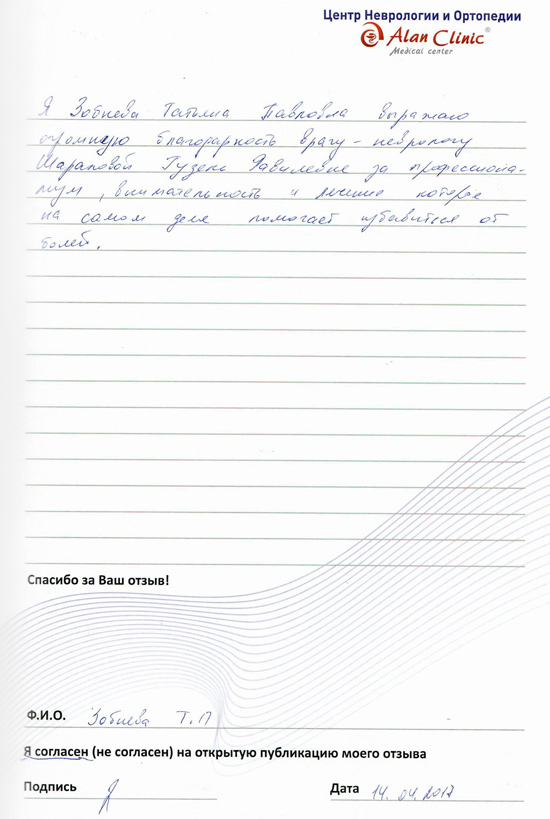 Центр Неврологии и Ортопедии
Alan Clinic®
Medical center
Я Зобнева Татьяна Павловна выражаю
огромную благодарность врачу-неврологу
Шараповой Гузель Равилевне за профессиона-
лизм, внимательность и лечение которое
на самом деле помогает избавиться от
болей.
Спасибо за Ваш отзыв!
Ф.И.О. Зобнева Т.П
Я согласен (не согласен) на открытую публикацию моего отзыва
Подпись Дата 14.04.2017